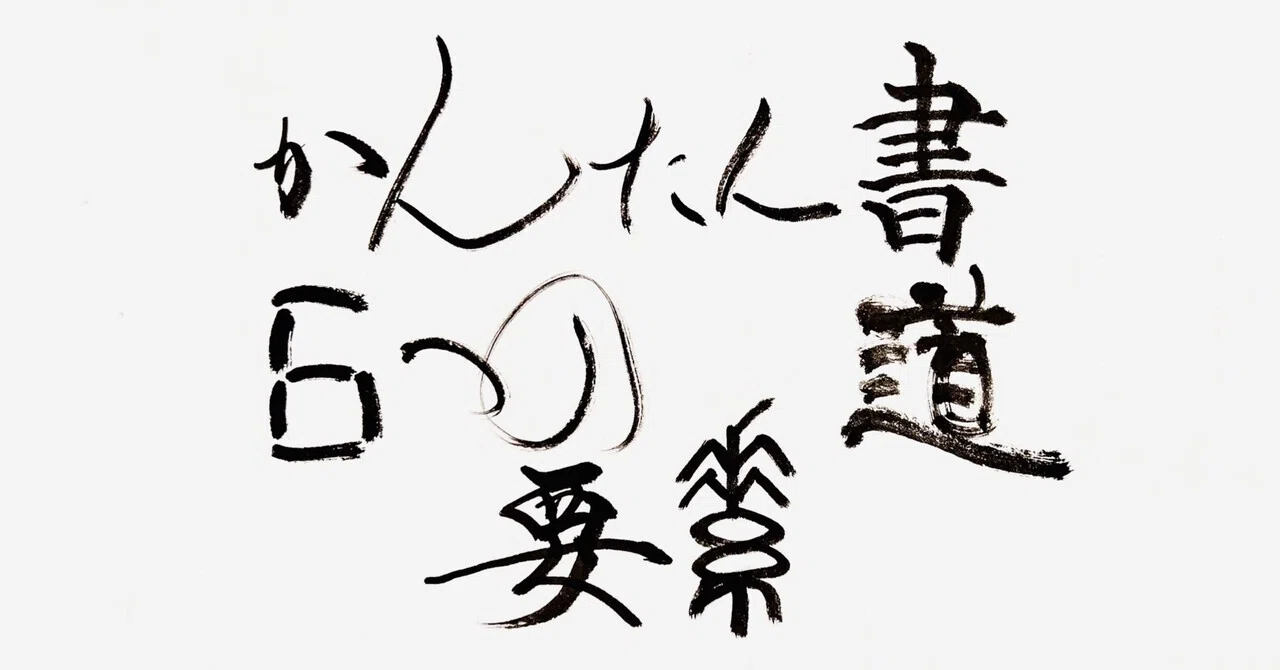 かんたん書道
6つの
要素